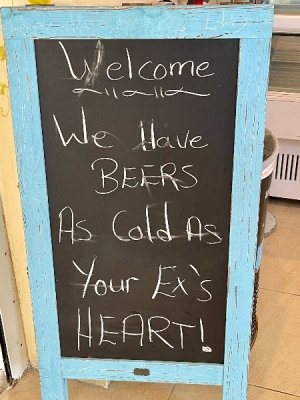 Welcome
We Have
BEERS
As Cold As
Your Ex's
HEART!